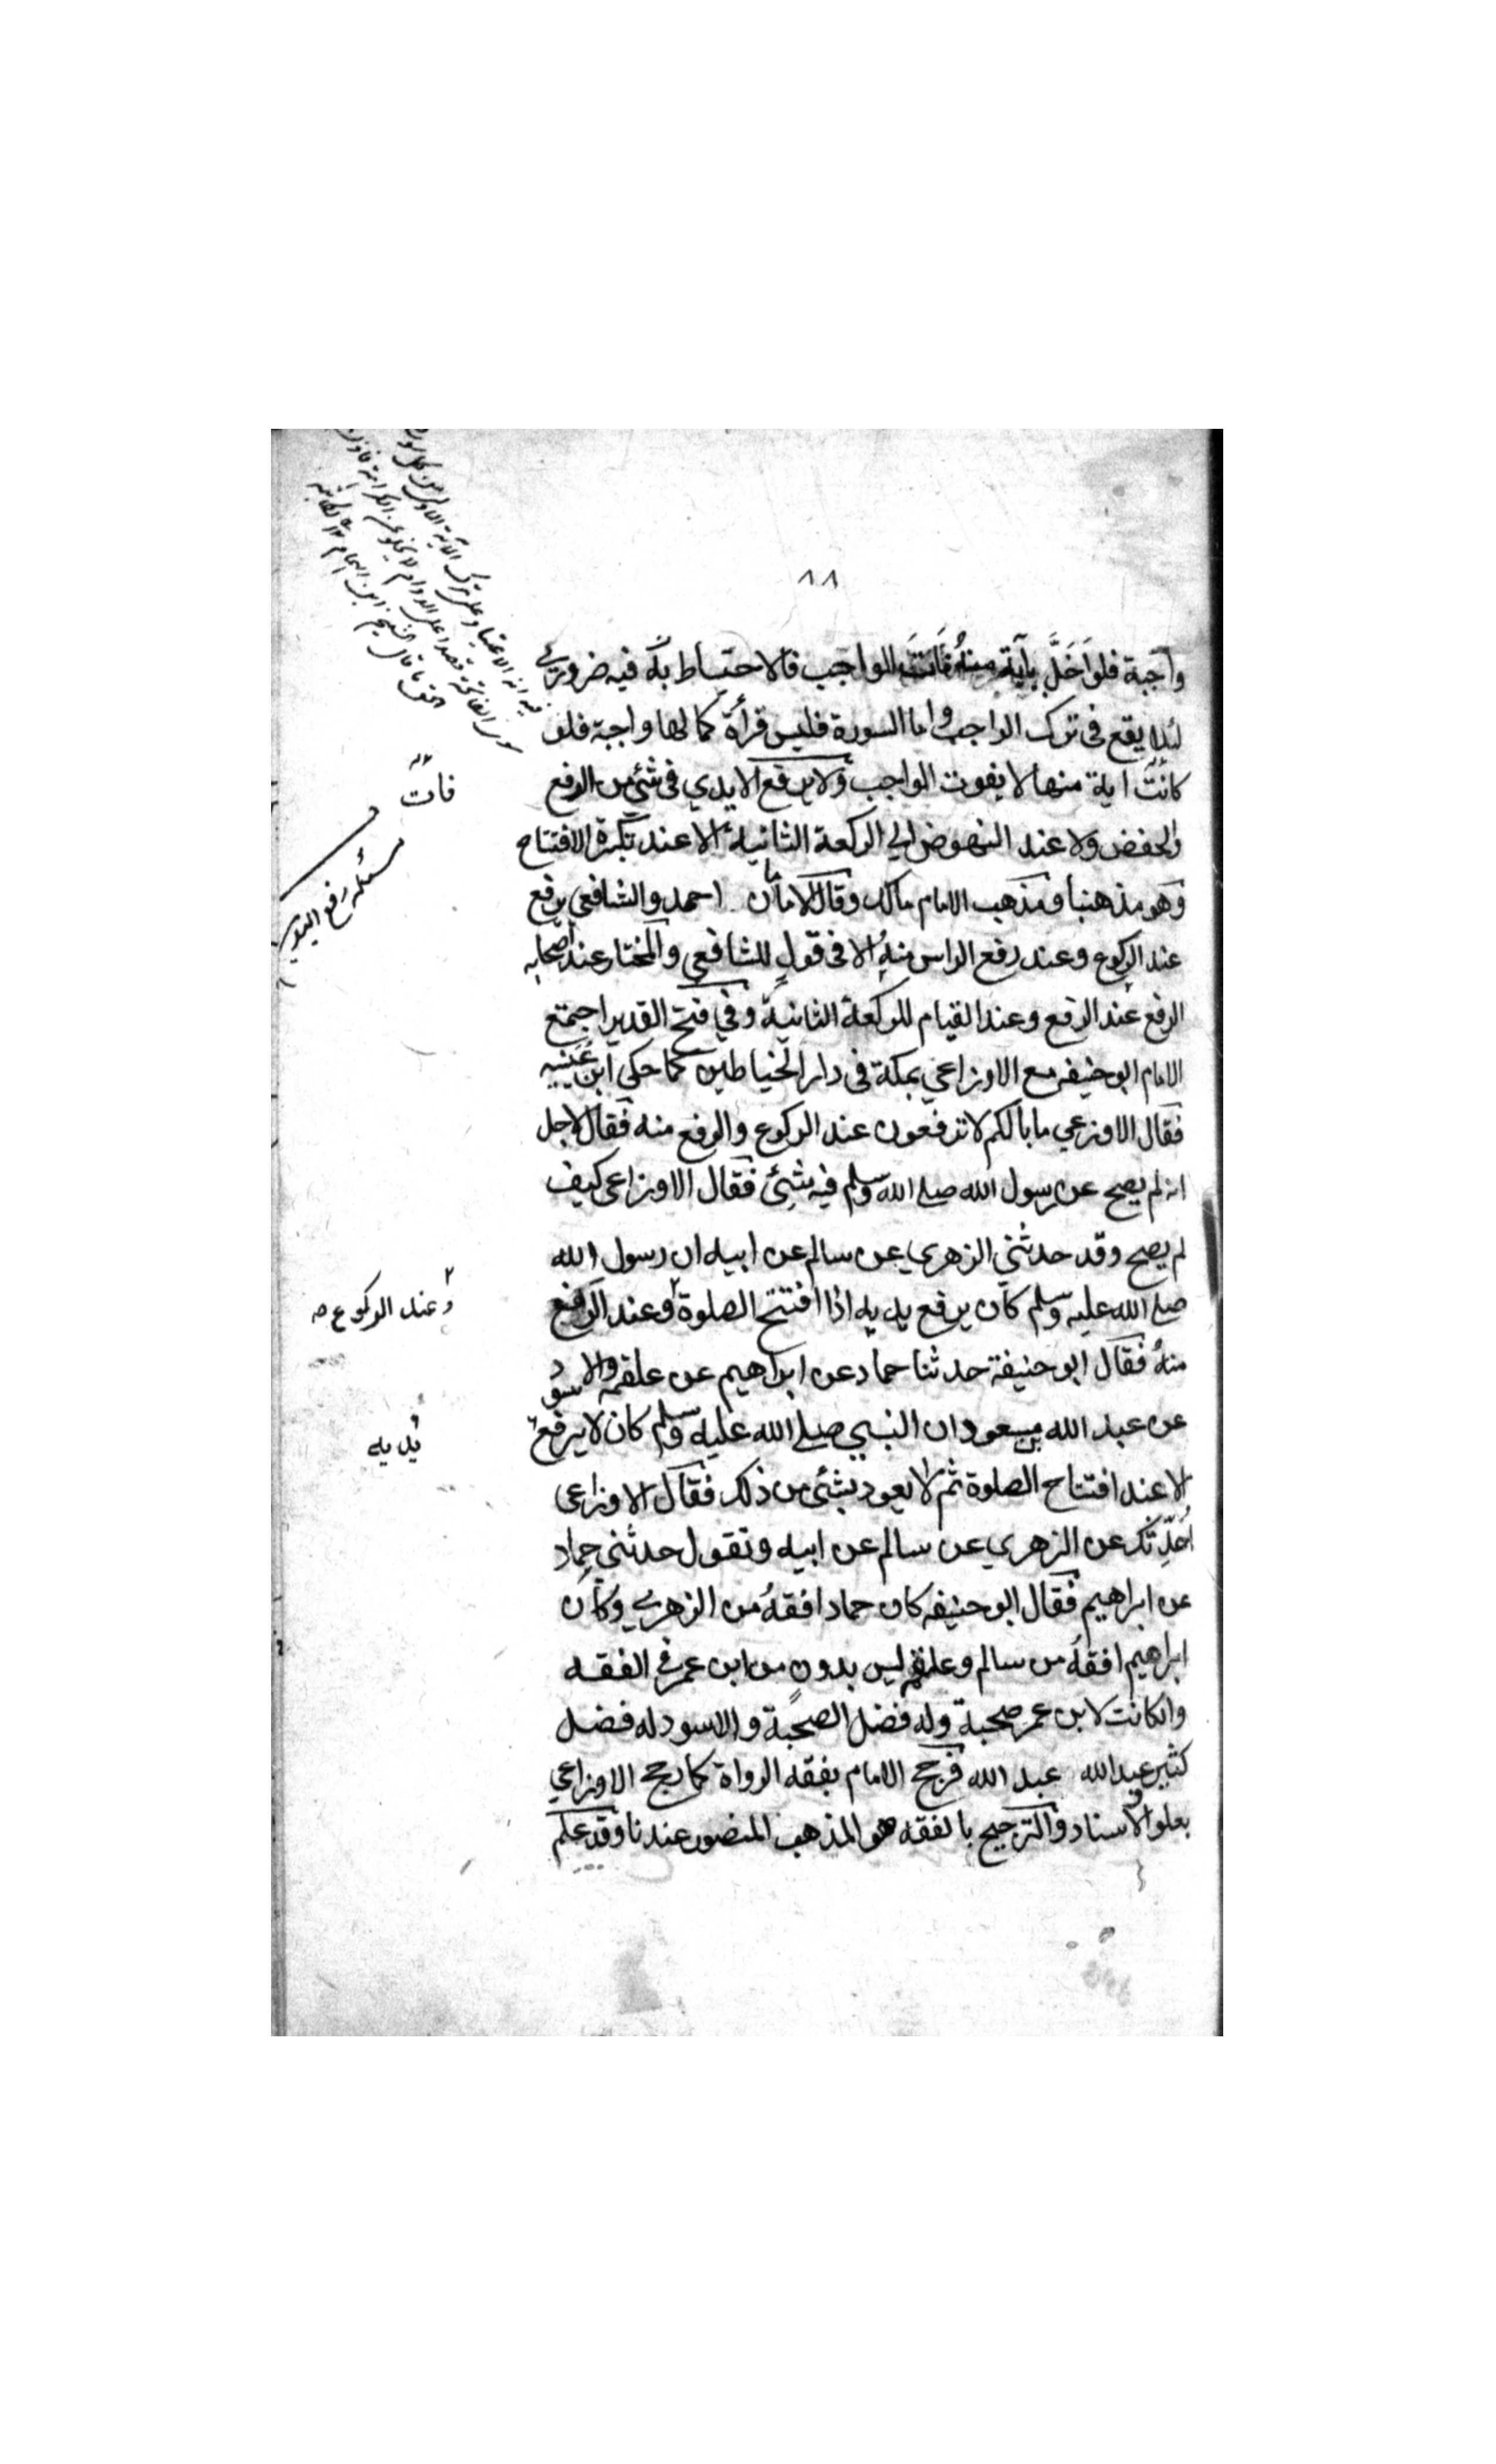 ٨٨
واجبة فلو اَخَلَّ بآية منهُ فَاتَ الواجب فالاحتياط بَه فيه ضروري
لئلا يقع فى ترك الواجب واما السورة فليس قرأة كما لها واجبة فلو
كانتْ اية منها لا يفوت الواجب ولا يرفع الايدي فى شئ من الرفع
والخفض ولا عند النهوض الي الركعة الثانية الا عند تكبيرة الافتتاح
وهو مذهبنا ومذهب الامام مالك وقال الامامان احمد والشافعي يرفع
عند الركوع وعند رفع الراس منهُ الا فى قولٍ للشافعي والمختار عند اصحابه
الرفع عند الرفع وعند القيام للركعة الثانية وفي فتح القدير اجتمع
الامام ابوحنيفه مع الاوزاعي بمكة فى دار الخياطين كما حكى ابن عُيَيْنِيه
فقال الاوزعي ما بالكم لا ترفعون عند الركوع والرفع منه فقال لاجل
انه لم يصح عن رسول الله صلے الله وسلم فيه شئ فقال الاوزاعى كيف
لم يصح وقد حدثني الزهري عن سالم عن ابيه ان رسول الله
صلے الله عليه وسلم كان يرفع يديه اذا افتتح الصلوة٢ وعند الرفع
منهُ فقال ابوحنيفة حدثنا حماد عن ابراهيم عن علقمه والاسود
عن عبد الله بن مسعود ان النبي صلے الله عليه وسلم كان لا يرفع
الا عند افتتاح الصلوة ثم لا يعود بشئ من ذلك فقال الاوزاعى
اُحَدِّثك عن الزهري عن سالم عن ابيه وتقول حدثني حماد
عن ابراهيم فقال ابوحنيفه كان حماد افقهُ من الزهرى وكان
ابراهيم افقهُ من سالم وعلقمه ليس بدونٍ من ابن عمر في الفقه
وانكانت لابن عمر صحبة وله فضل الصحبة والاسود له فضل
كثير عبد الله عبد الله فرجح الامام بفقه الرواة كما رجح الاوزاعي
بعلو الاسناد والترجيح بالفقه هو المذهب المنصور عندنا وقد علم
فات
مسئله رفع اليدين
٢ وعند الركوع صه
يديه